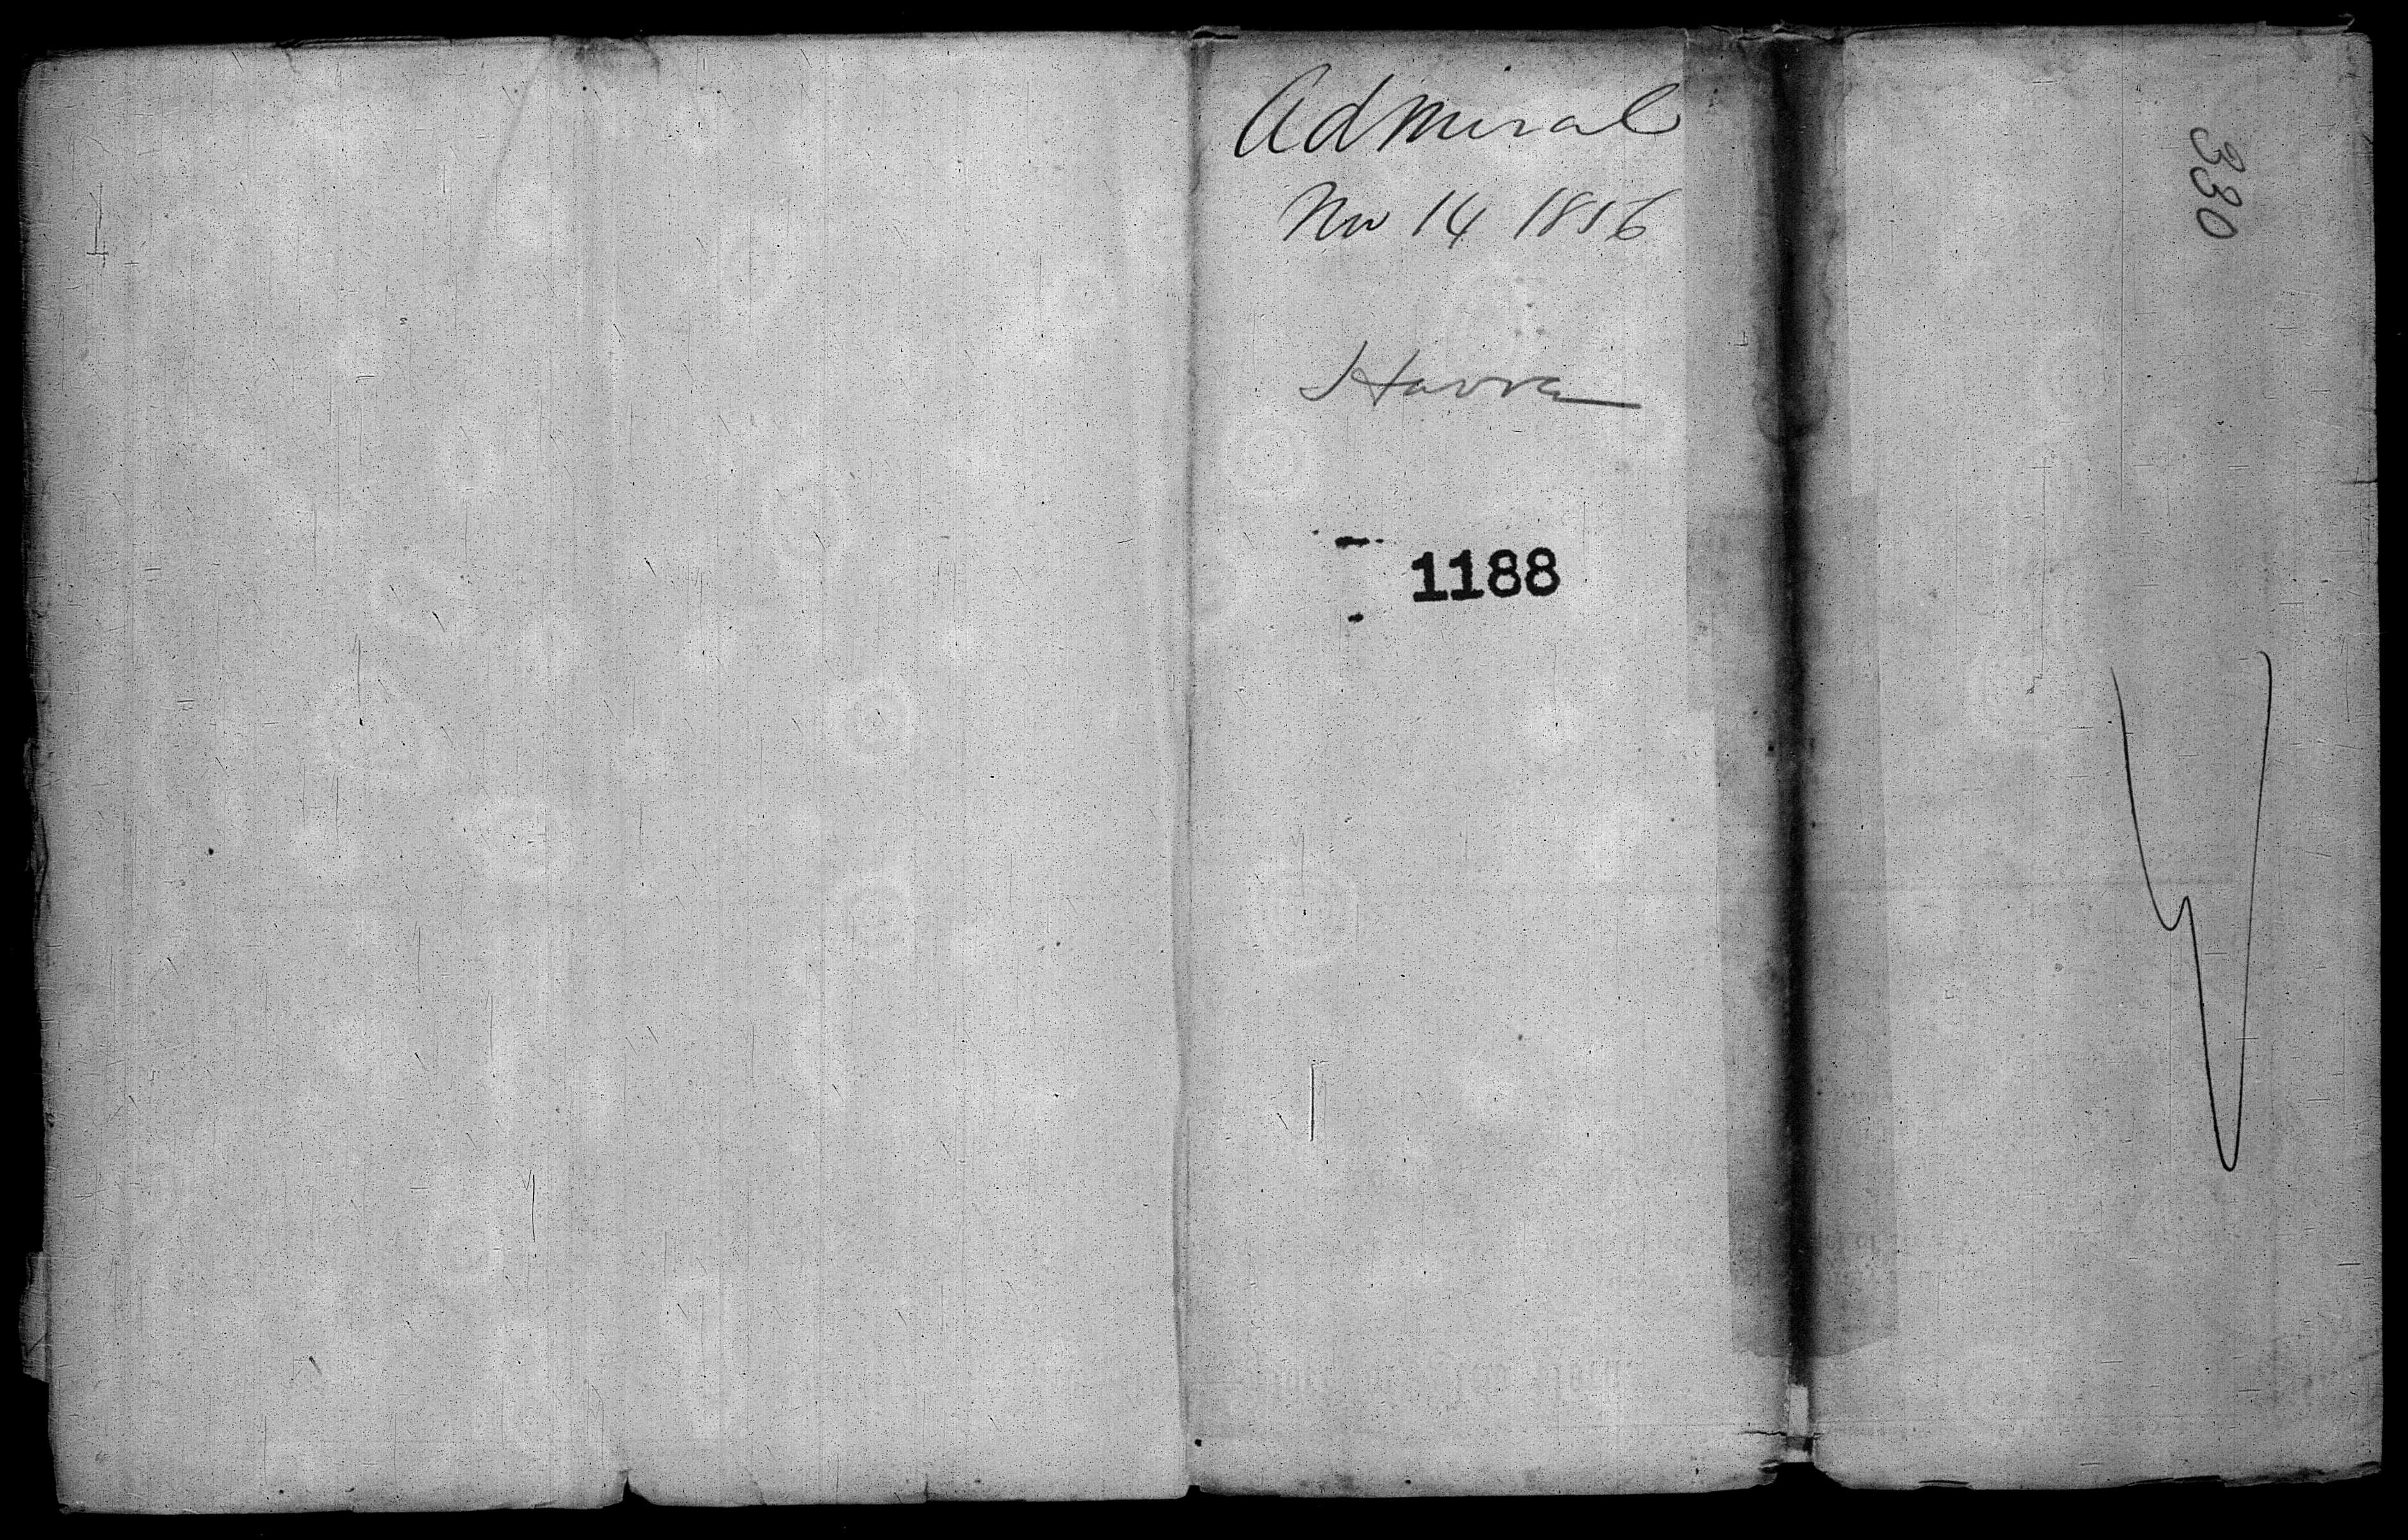 Admiral
Nov 14 1856
Havre
1188
330